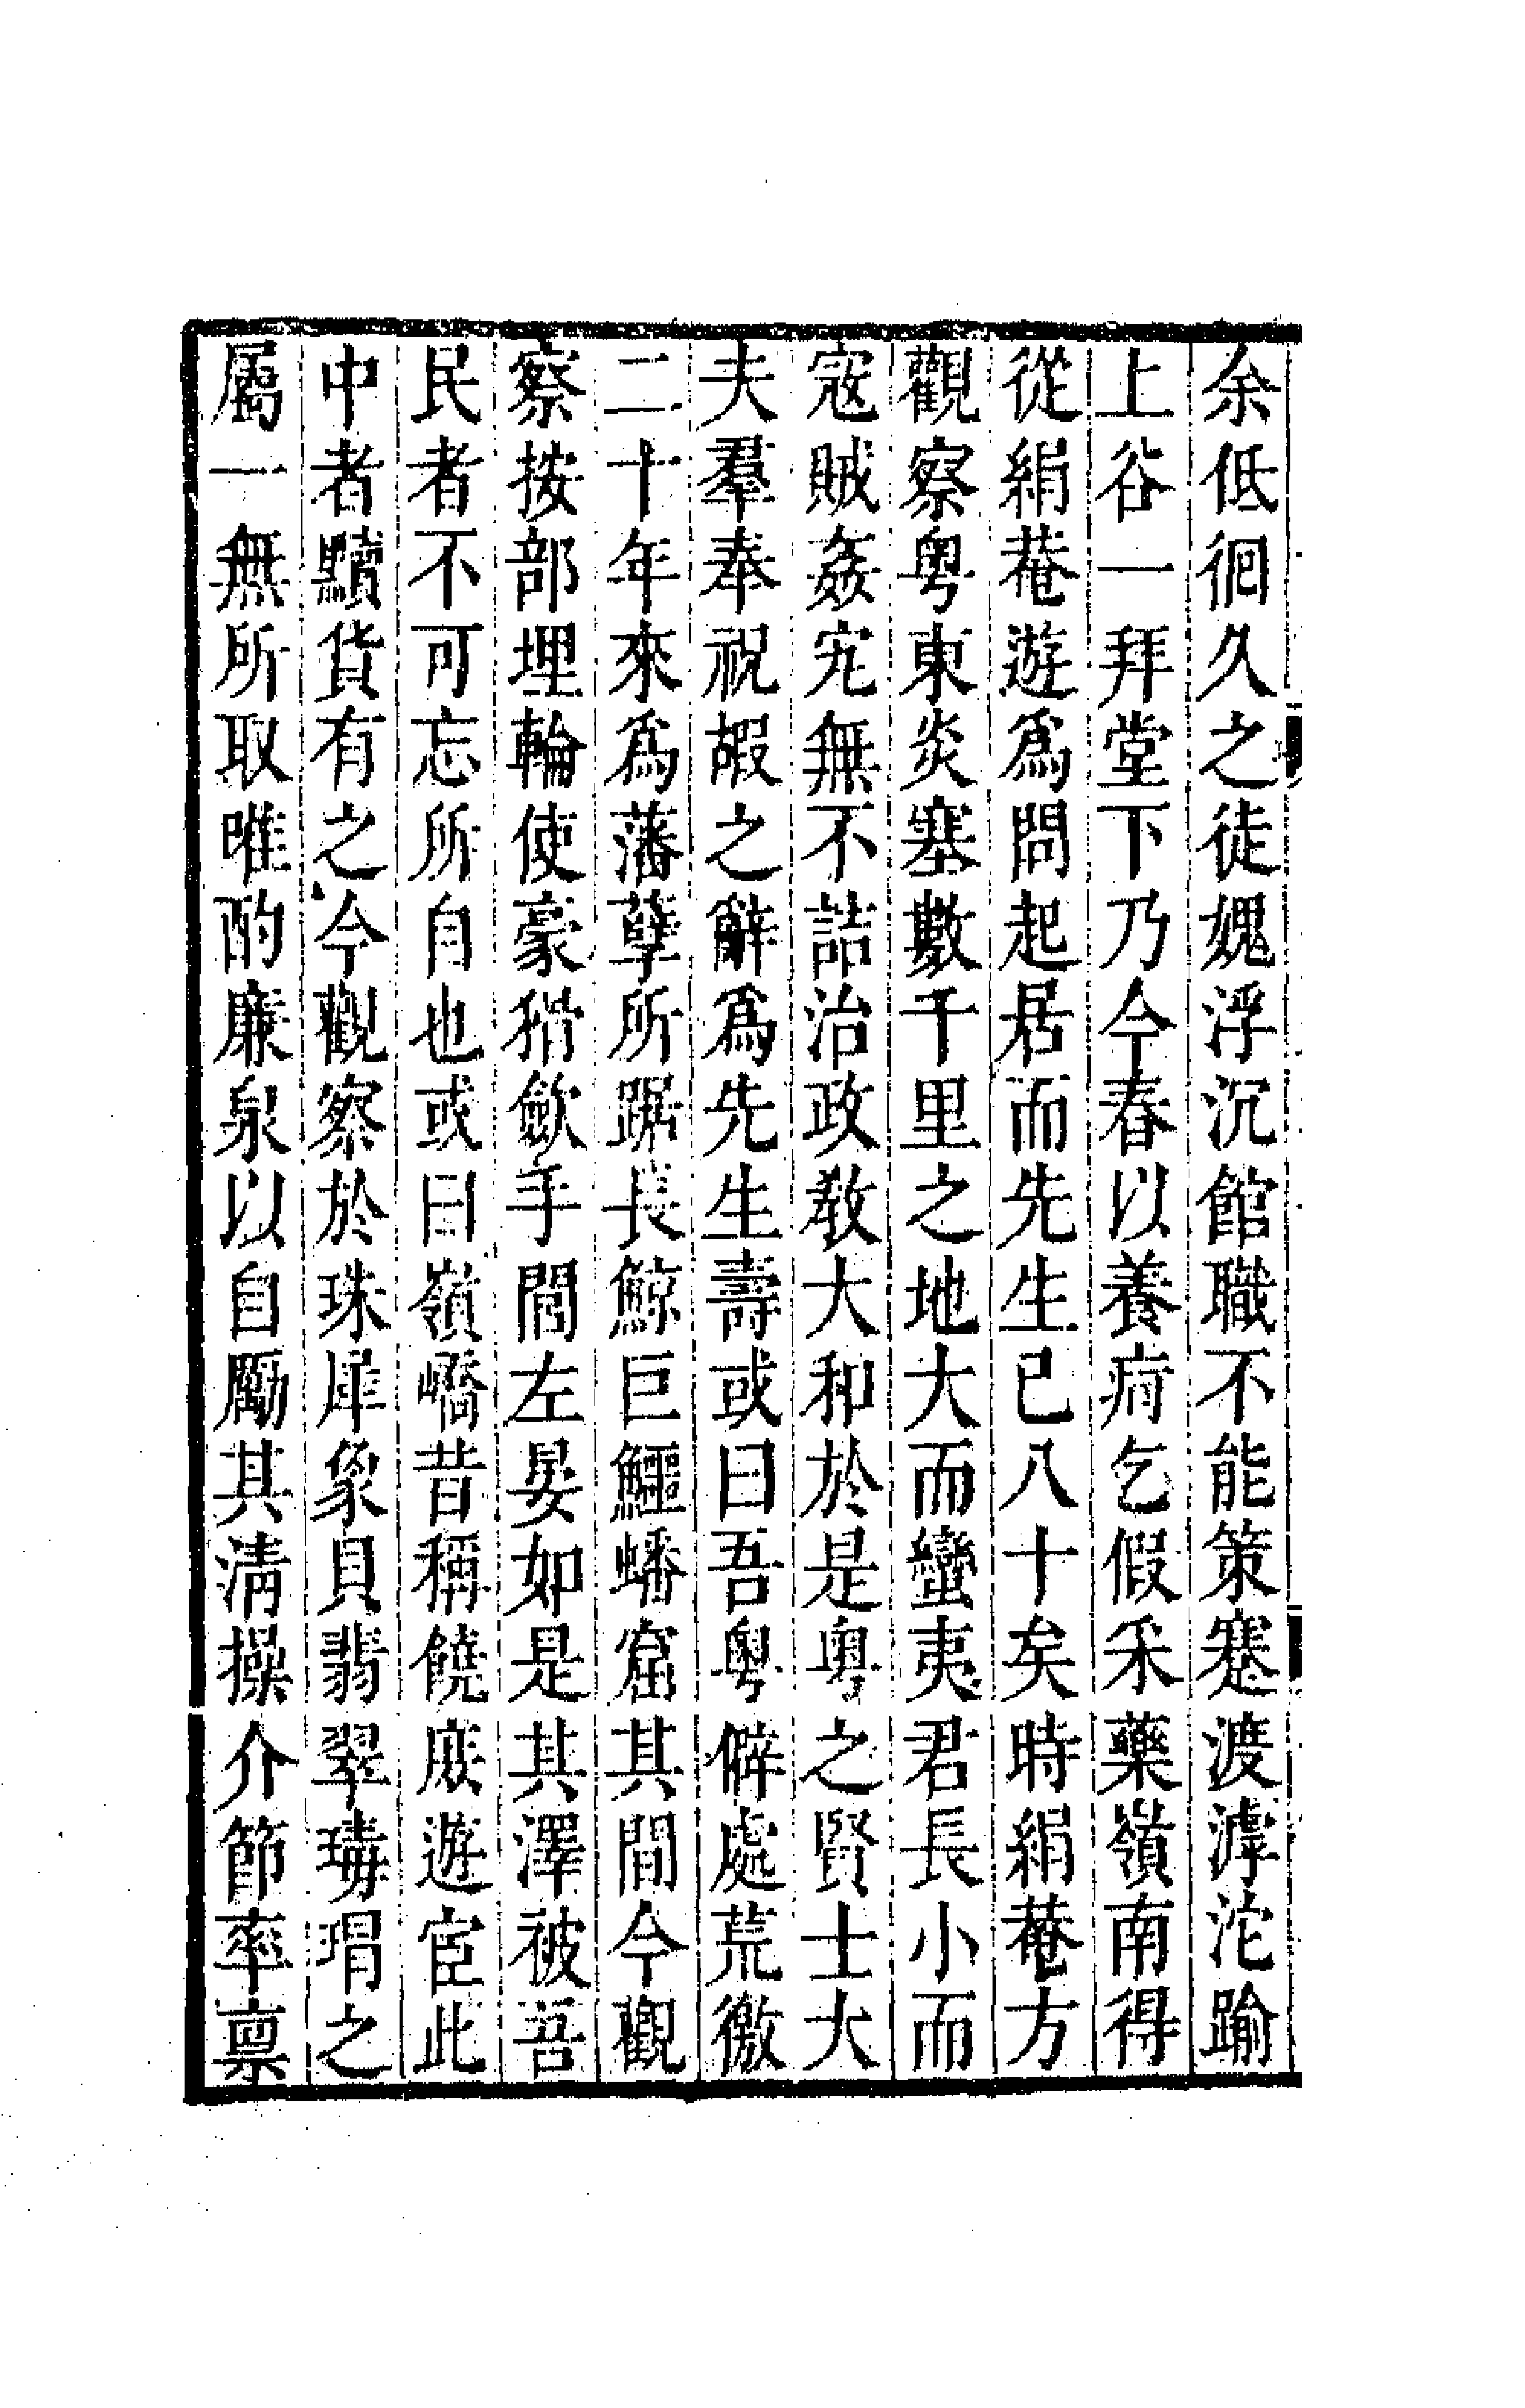 余低徊久之徒媿浮沉館職不能策蹇渡滹沱踰
上谷一拜堂下乃今春以養疴乞假采藥嶺南得
從絹菴遊爲問起居而先生已八十矣時絹菴方
觀察粵東炎塞數千里之地大而蠻夷君長小而
寇賊姦宄無不詰治政敎大和於是粵之賢士大
夫羣奉祝嘏之辭爲先生壽或曰吾粵僻處荒徼
二十年來爲藩孽所踞長鯨巨鱷蟠窟其間今觀
察按部埋輪使豪猾歛手閭左晏如是其澤被吾
民者不可忘所自也或曰嶺嶠昔稱饒庶遊宦此
中者黷貨有之今觀察於珠犀象貝翡翠瑇瑁之
屬一無所取唯酌廉泉以自勵其淸操介節率稟